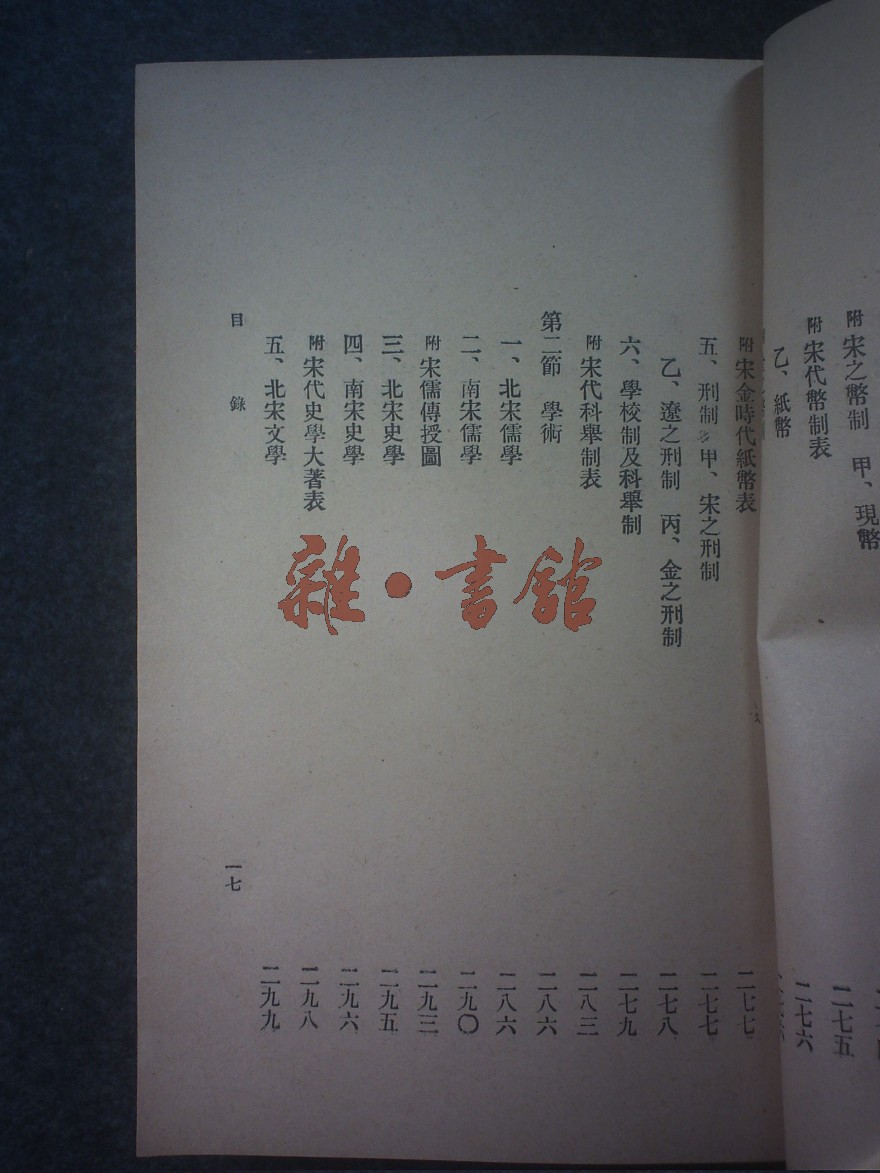 附 宋之幣制 甲、現幣 二七五
附 宋代幣制表 二七六
乙、紙幣
附 宋金時代紙幣表 二七七
五、刑制 甲、宋之刑制 二七七
乙、遼之刑制 丙、金之刑制 二七八
六、學校制及科舉制 二七九
附 宋代科舉制表 二八三
第二節 學術 二八六
一、北宋儒學 二八六
二、南宋儒學 二九〇
附 宋儒傳授圖 二九三
三、北宋史學 二九五
四、南宋史學 二九六
附 宋代史學大著表 二九八
五、北宋文學 二九九
目錄 一七
雜·書舘